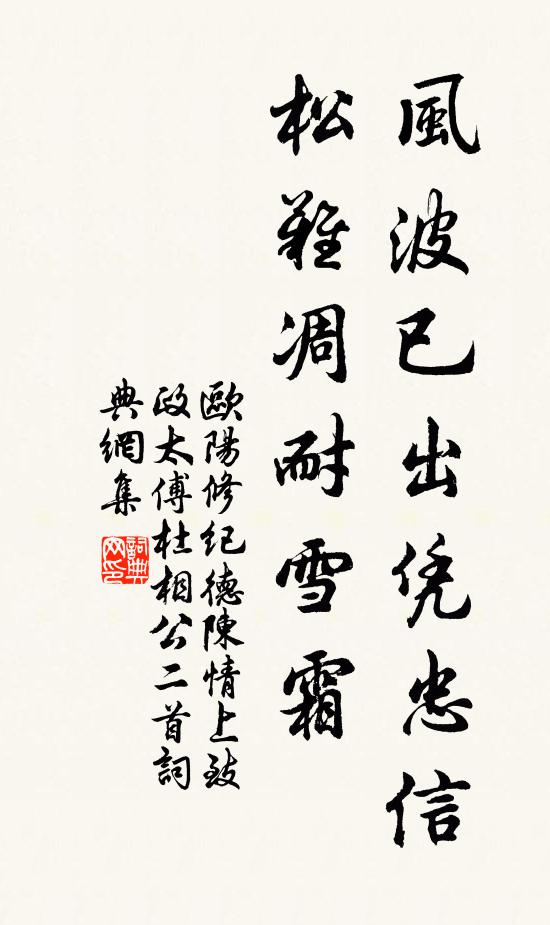 風波已出凭忠信
松難凋耐雪霜
歐陽修紀德陳情上致
政太傅杜相公二首詞
典網集
詞典
网印